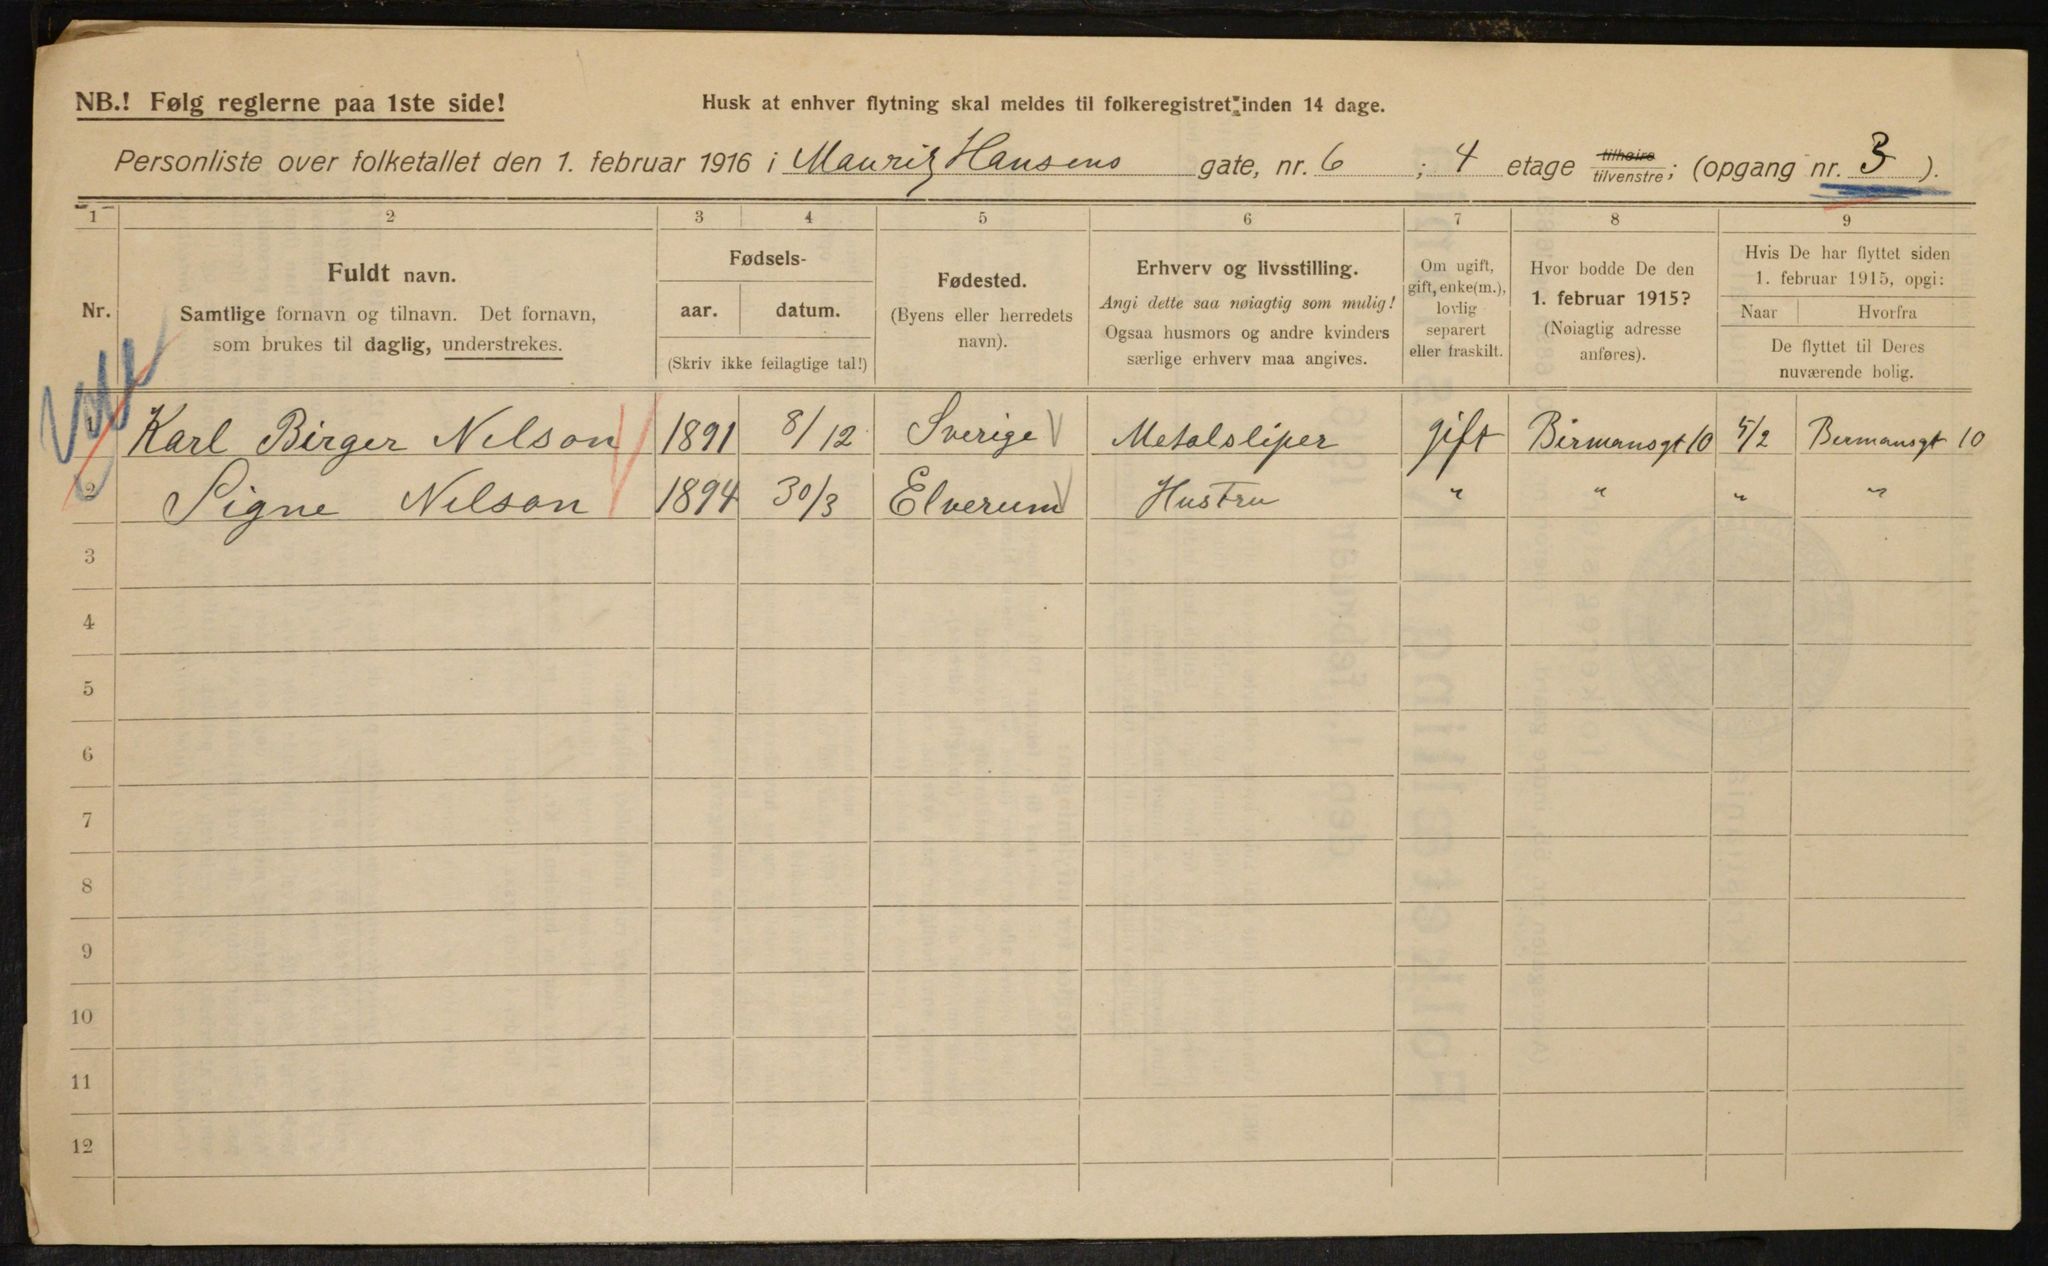 NB.! Følg reglerne paa 1ste side!
Husk at enhver flytning skal meldes til folkeregistret inden 14 dage.
Personliste over folketallet den 1. februar 1916 i Mauritz Hansens gate, nr. 6 ; 4 etage tilhøire tilvenstre; (opgang nr. 3 ).
1 2 3 4 5 6 7 8 9
Nr.
Fuldt navn.
Samtlige fornavn og tilnavn. Det fornavn,
som brukes til daglig, understrekes.
Fødsels-
aar. datum.
(Skriv ikke feilagtige tal!)
Fødested.
(Byens eller herredets
navn).
Erhverv og livsstilling.
Angi dette saa nøiagtig som mulig!
Ogsaa husmors og andre kvinders
særlige erhverv maa angives.
Om ugift,
gift, enke(m.),
lovlig
separert
eller fraskilt.
Hvor bodde De den
1. februar 1915?
(Nøiagtig adresse
anføres).
Hvis De har flyttet siden
1. februar 1915, opgi:
Naar Hvorfra
De flyttet til Deres
nuværende bolig.
Karl Birger Nelson 1891 8/12 Sverige Metalsliper gift Birmansgt 10 5/2 Bermansgt 10
2 Signe Nelson 1894 30/3 Elverum Hustru " " " "
3
4
5
6
7
8
9
10
11
12